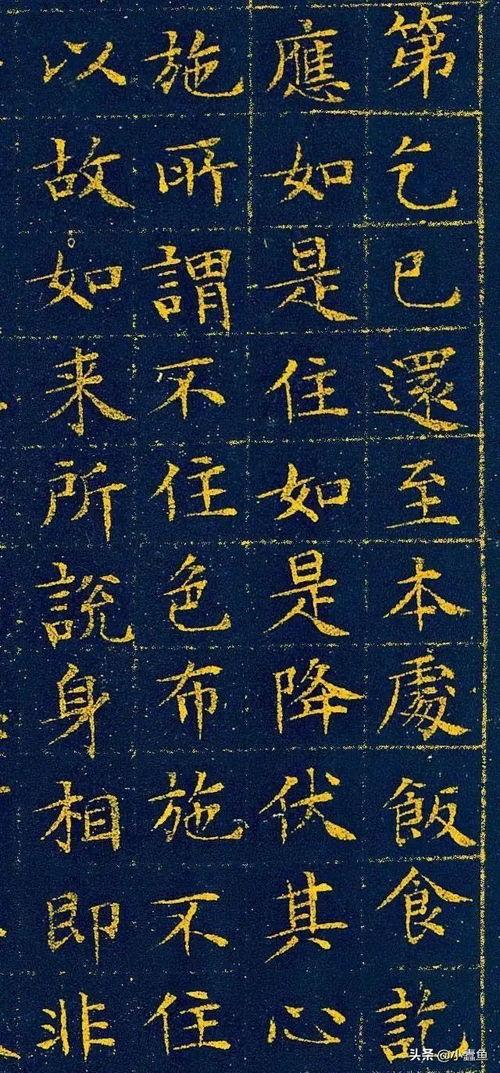 第乞已還至本處飯食訖
應如是住如是降伏其心
施所謂不住色布施不住
以故如来所說身相即非
头条@小蠹鱼